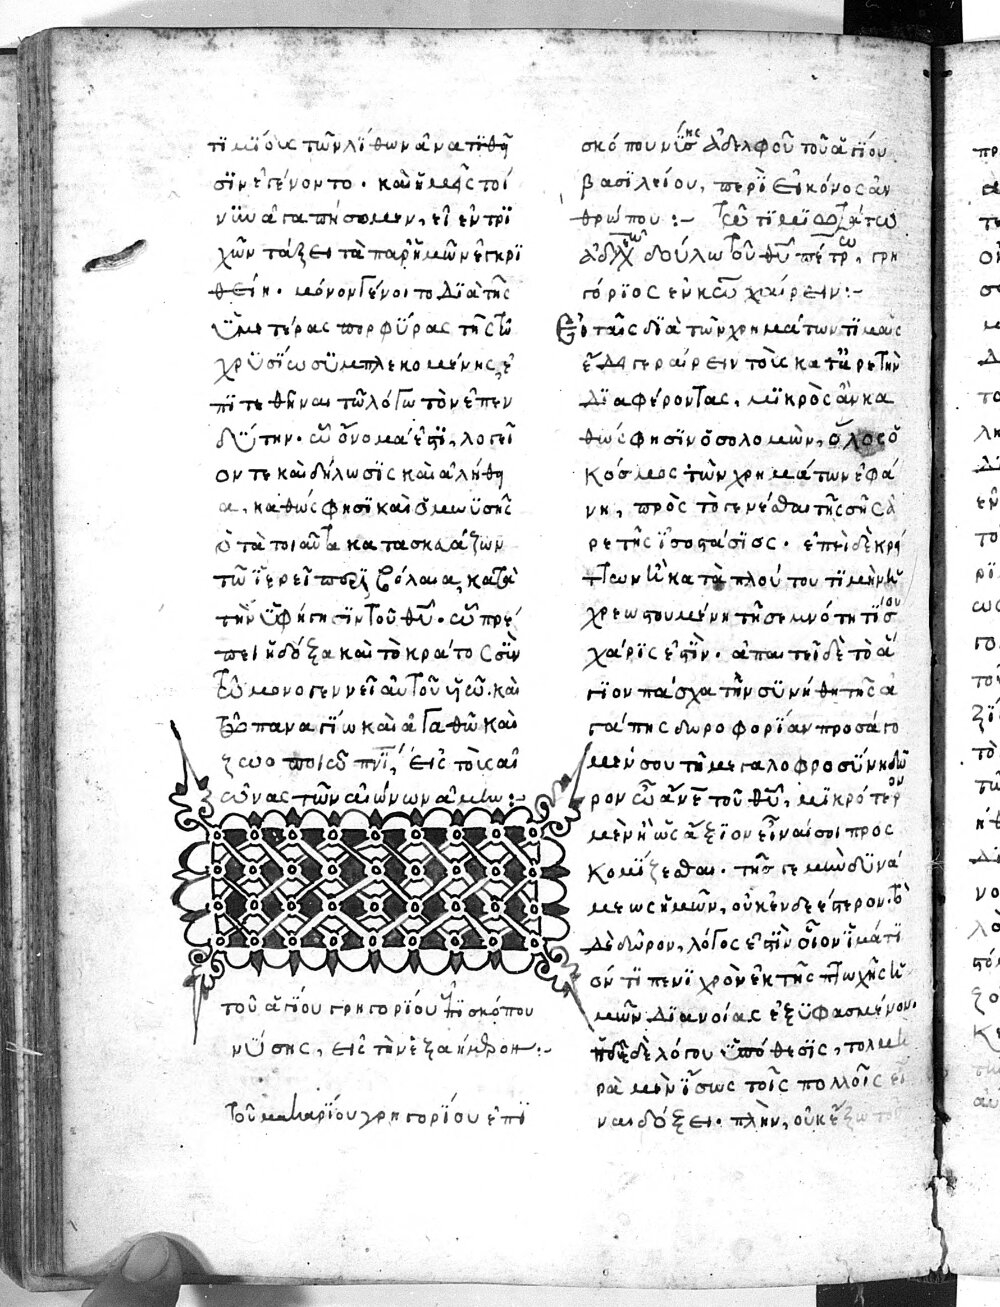 τιμίοις τῶν λίθων ἀνατιθῆ
σιν ἐγένοντο. καὶ ἡμεῖς τοί
νυν ἀγαπήσομεν, εἰ ἐν τρι
χῶν τάξει τὰ παρ ἡμῶν ἐγκρι
θείη. μόνον γένοιτο διὰ τῆς
ὑμετέρας πορφύρας τῆς τῶ
χρυσίω συμπλεκομένης, ἐ
πιτεθῆναι τῶ λόγω τὸν ἐπεν
δύτην. οὗ ὄνομά ἐστι, λογεῖ
όν τε καὶ δήλωσις καὶ ἀλήθη
α, καθώς φησι καὶ ὁ μωϋσῆς
ὁ τὰ τοιαῦτα κατασκευάζων
τῶ ἱερεῖ περιβόλαια, κατὰ
τὴν ὑφήγησιν τοῦ θυ. οὗ πρέ
πει ἡ δόξα καὶ τὸ κράτος σὺν
τῶ μονογεννεῖ αὐτοῦ υἱῶ. καὶ
τῶ παναγίω καὶ ἀγαθῶ καὶ
ζωοποιῶ πνι, εἰς τοὺς αἰ
ῶνας τῶν αἰώνων ἀμήν:-
τοῦ ἁγίου γρηγορίου ἐπισκόπου
νύσης, εἰς τὴν ἑξαήμερον:-
τοῦ μακαρίου γρηγορίου ἐπι
σκόπου νύσης ἀδελφοῦ τοῦ ἁγίου
βασιλείου, περὶ εἰκόνος ἀν
θρώπου:- τῶ τιμιωτάτω
ἀδελφῶ δούλω τοῦ θυ πέτρω, γρη
γόριος ἐν κω χαίρειν:-
Εἰ ταῖς διὰ τῶν χρημάτων τιμαῖς
ἔδει γεραίρειν τοὺς κατ ἀρετὴν
διαφέροντας, μικρὸς ἂν κα
θώς φησιν ὁ σολομὼν, ὅλος ὁ
κόσμος τῶν χρημάτων ἐφά
νη, πρὸς τὸ γενέσθαι τῆς σῆς ἀ
ρετῆς ἰσοστάσιος. ἐπεὶ δὲ κρεί
ττων ἢ κατὰ πλούτου τιμὴν ἡ
χρεωστουμένη τῆ σεμνότητί σου
χάρις ἐστὶν. ἀπαιτεῖ δὲ τὸ ἅ
γιον πάσχα τὴν συνήθη τῆς ἀ
γάπης δωροφορίαν προσάγο
μέν σου τῆ μεγαλοφροσύνη δῶ
ρον ὦ ἄνε τοῦ θυ, μικρότερον
μὲν ἢ ὡς ἄξιον εἶναί σοι προς
κομίζεσθαι. τῆς γε μὴν δυνά
μεως ἡμῶν, οὐκ ἐνδεέστερον. τὸ
δὲ δῶρον, λόγος ἐστὶν οἷον ἱμάτι
όν τι πενιχρὸν ἐκ τῆς πτωχῆς ἡ
μῶν διανοίας ἐξυφασμένον.
ἡ δὲ δὲ λόγου ὑπόθεσις, τολμη
ρὰ μὲν ἴσως τοῖς πολλοῖς εἶ
ναι δόξει. πλὴν, οὐκ ἔξω τοῦ